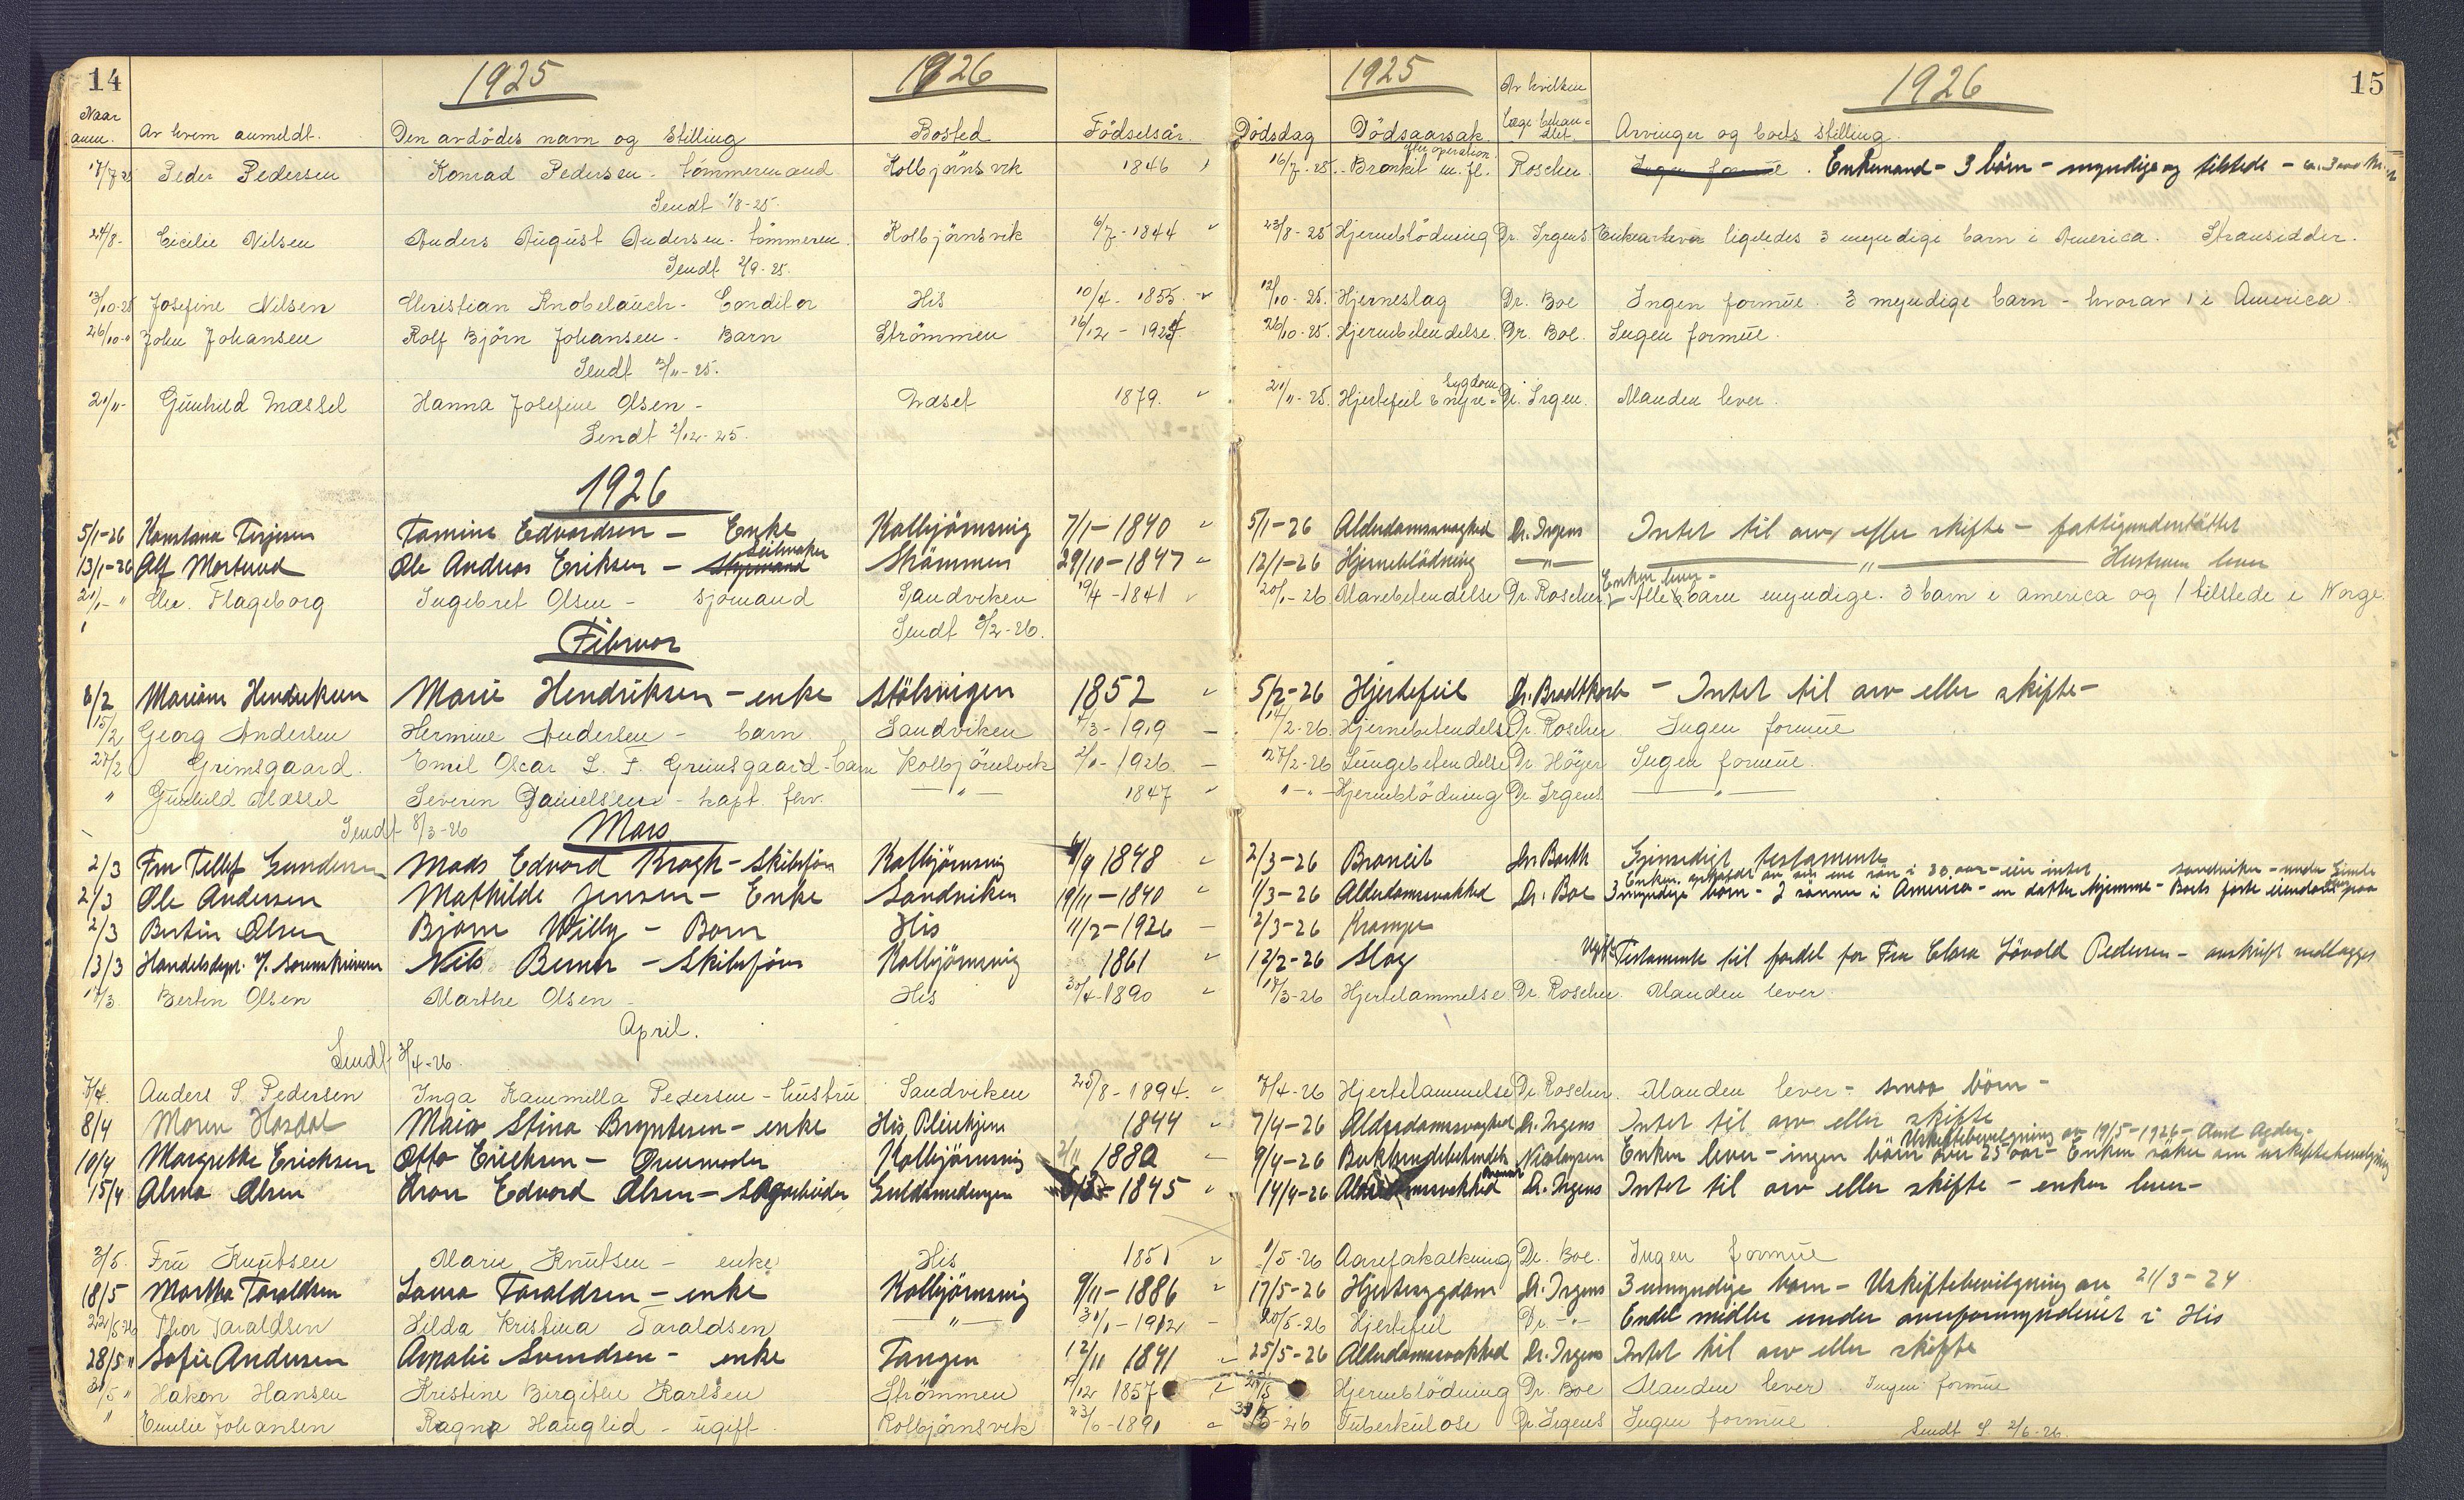 14 1925 1926 1925 1926 15
Naar anm. Av hvem anmeldt. Den avdödes navn og Stilling Bosted Födselsår. Dödsdag Dödsaarsak Av hvilken læge behandlet Arvinger og boets stilling.
17/7-25 Peder Pedersen Konrad Pedersen - tömmermand Kolbjörnsvik 1846 16/7-25 Bronkit m. fl. efter operation Roscher Ingen formue. Enkemand - 3 börn - myndige og tilstede -
Sendt 1/8-25.
24/8- Cicilie Nilsen Anders August Andersen - tömmerm. Kolbjörnsvik 6/7-1844 23/8-25 Hjerneblödning Dr. Irgens Enken lever ligeledes 3 myndige barn i America. Stransidder.
Sendt 2/9-25.
13/10-25 Josefine Nilsen Christian Knobelauch - Conditor His 10/4-1855 12/10-25. Hjerneslag Dr. Boe Ingen formue. 3 myndige barn - hvorav 1 i America.
26/10-" John Johansen Rolf Björn Johansen - Barn Strömmen 16/12-1924 26/10-25. Hjernebetendelse. Dr. Boe. Ingen formue.
Sendt 3/11-25.
21/11- Gunhild Mæssel Hanna Josefine Olsen - Næset 1879. 21/11-25. Hjertefeil & nyre-sygdom Dr. Irgen. Manden lever.
Sendt 2/12-25.
1926
5/1-26 Konstana Terjesen Tomine Edvardsen - Enke Kolbjörnsvig 7/1-1840 5/1-26 Alderdomssvaghed Dr. Irgens Intet til arv eller skifte - fattigunderstöttet
13/1-26 Alf Morlund Ole Andreas Eriksen - Styrmand Seilmaker Strömmen 29/10-1847 12/1-26 Hjerneblödning -"- -"- Hustruen lever
21/1-" Chr. Flageborg Ingebret Olsen - Sjömand Sandviken 19/4-1841 20/1-26 Mavebetendelse Dr. Roscher Enken lever - Alle barn myndige. 3 barn i america og 1 tilstede i Norge.
Sendt 3/2-26.
Februar
6/2 Mariane Hendriksen Marie Hendriksen - enke Stölsvigen 1852 5/2-26 Hjertefeil Dr. Bredtkorb - Intet til arv eller skifte-
15/2 Georg Andersen Hermine Andersen - barn Sandviken 4/3-1919 14/2-26. Hjernebetendelse Dr. Roscher. Ingen formue
27/2 Grimsgaard. Emil Oscar L. F. Grimsgaard - barn Kolbjörnsvik 2/1-1926 27/2-26 Lungebetendelse Dr. Höyer Ingen formue.
" Gunhild Mæssel Severin Danielsen - kapt. fhv. -"- 1847 "-"- Hjerneblödning Dr. Irgens -"-
Sendt 8/3-26 Mars
2/3 Fru Tellef Gundersen Mads Edvard Krogh - Skibsförer Kolbjörnsvig 4/9 1848 2/3-26 Broncit Dr. Barth Gjensidigt testamente Enken
2/3 Ole Andersen Mathilde Jensen - Enke Sandviken 19/11-1840 1/3-26 Alderdomssvakhed Dr. Boe 3 myndige börn - 2 sönner i America - en datter hjemme - Boets faste eiendom paa Sandviken - under Gimle
2/3 Bertin Olsen Bjarne Willy - Barn His 11/2-1926 2/3-26 Kramper
13/3 Handelsdept. v/ Sorenskriveren Nils Berner - Skibsförer Kolbjörnsvig 1861 12/2-26 Slag Ugift. Testamente til fordel for Fru Clara Lövold Pedersen - avskrift vedlægges
17/3 Bertin Olsen Marthe Olsen - His 30/4-1890 17/3-26 Hjertelammelse Dr. Roscher. Manden lever.
April.
Sendt 3/4-26.
7/4. Anders S. Pedersen Inga Kammilla Pedersen - hustru Sandviken 28/8-1894. 7/4-26 Hjertelammelse Dr. Roscher. Manden lever - smaa börn -
8/4 Maren Hasdal Maia Stina Bryntesen - enke His, Pleiehjem 1844 7/4-26 Alderdomssvaghed Dr. Irgens Intet til arv eller skifte
10/4 Margrethe Ericksen Otto Ericksen - Kolbjörnsvig 2/11 1880 9/4-26 Nicolaysen Enken lever - ingen börn over 25 aar - Enken söker om uskiftebevilgning Uskiftebevilgning av 19/5-1926 - Aust Agder -
15/4 Alma Olsen Aron Edvard Olsen - Sagarbeider Guldsmedengen 1845 14/4-26 Alderdomssvakhed Dr. Irgens Intet til arv eller skifte - enken lever -
3/5. Fru Knutsen Marie Knutsen - enke His 1851 1/5-26 Aareforkalkning Dr. Boe. Ingen formue
18/5 Martha Taraldsen Laura Taraldsen - enke Kolbjörnsvig 9/11-1886 17/5-26 Hjertesygdom Dr. Irgens 3 umyndige barn - Uskiftebevilgning av 21/3-24
22/5-26 Thor Taraldsen Hilda Kristina Taraldsen -"- 31/1-1912 20/5-26 Hjertefeil Dr -"- Endel midler under overformynderiet i His
28/5 " Sofie Andersen Amalie Svendsen - enke Tangen 12/11 1841 25/5-26 Alderdomssvakhed Dr. Irgens Intet til arv eller skifte
31/5 " Hakon Hansen Kristine Birgithe Karlsen Strömmen 1857 Hjerneblödning Dr. Boe Manden lever. Ingen formue
" Emilie Johansen Ragna Hauglid - ugift Kolbjörnsvik 23/6-1891 Tuberkulose Dr Irgens Ingen formue. Sendt S. 2/6-26.